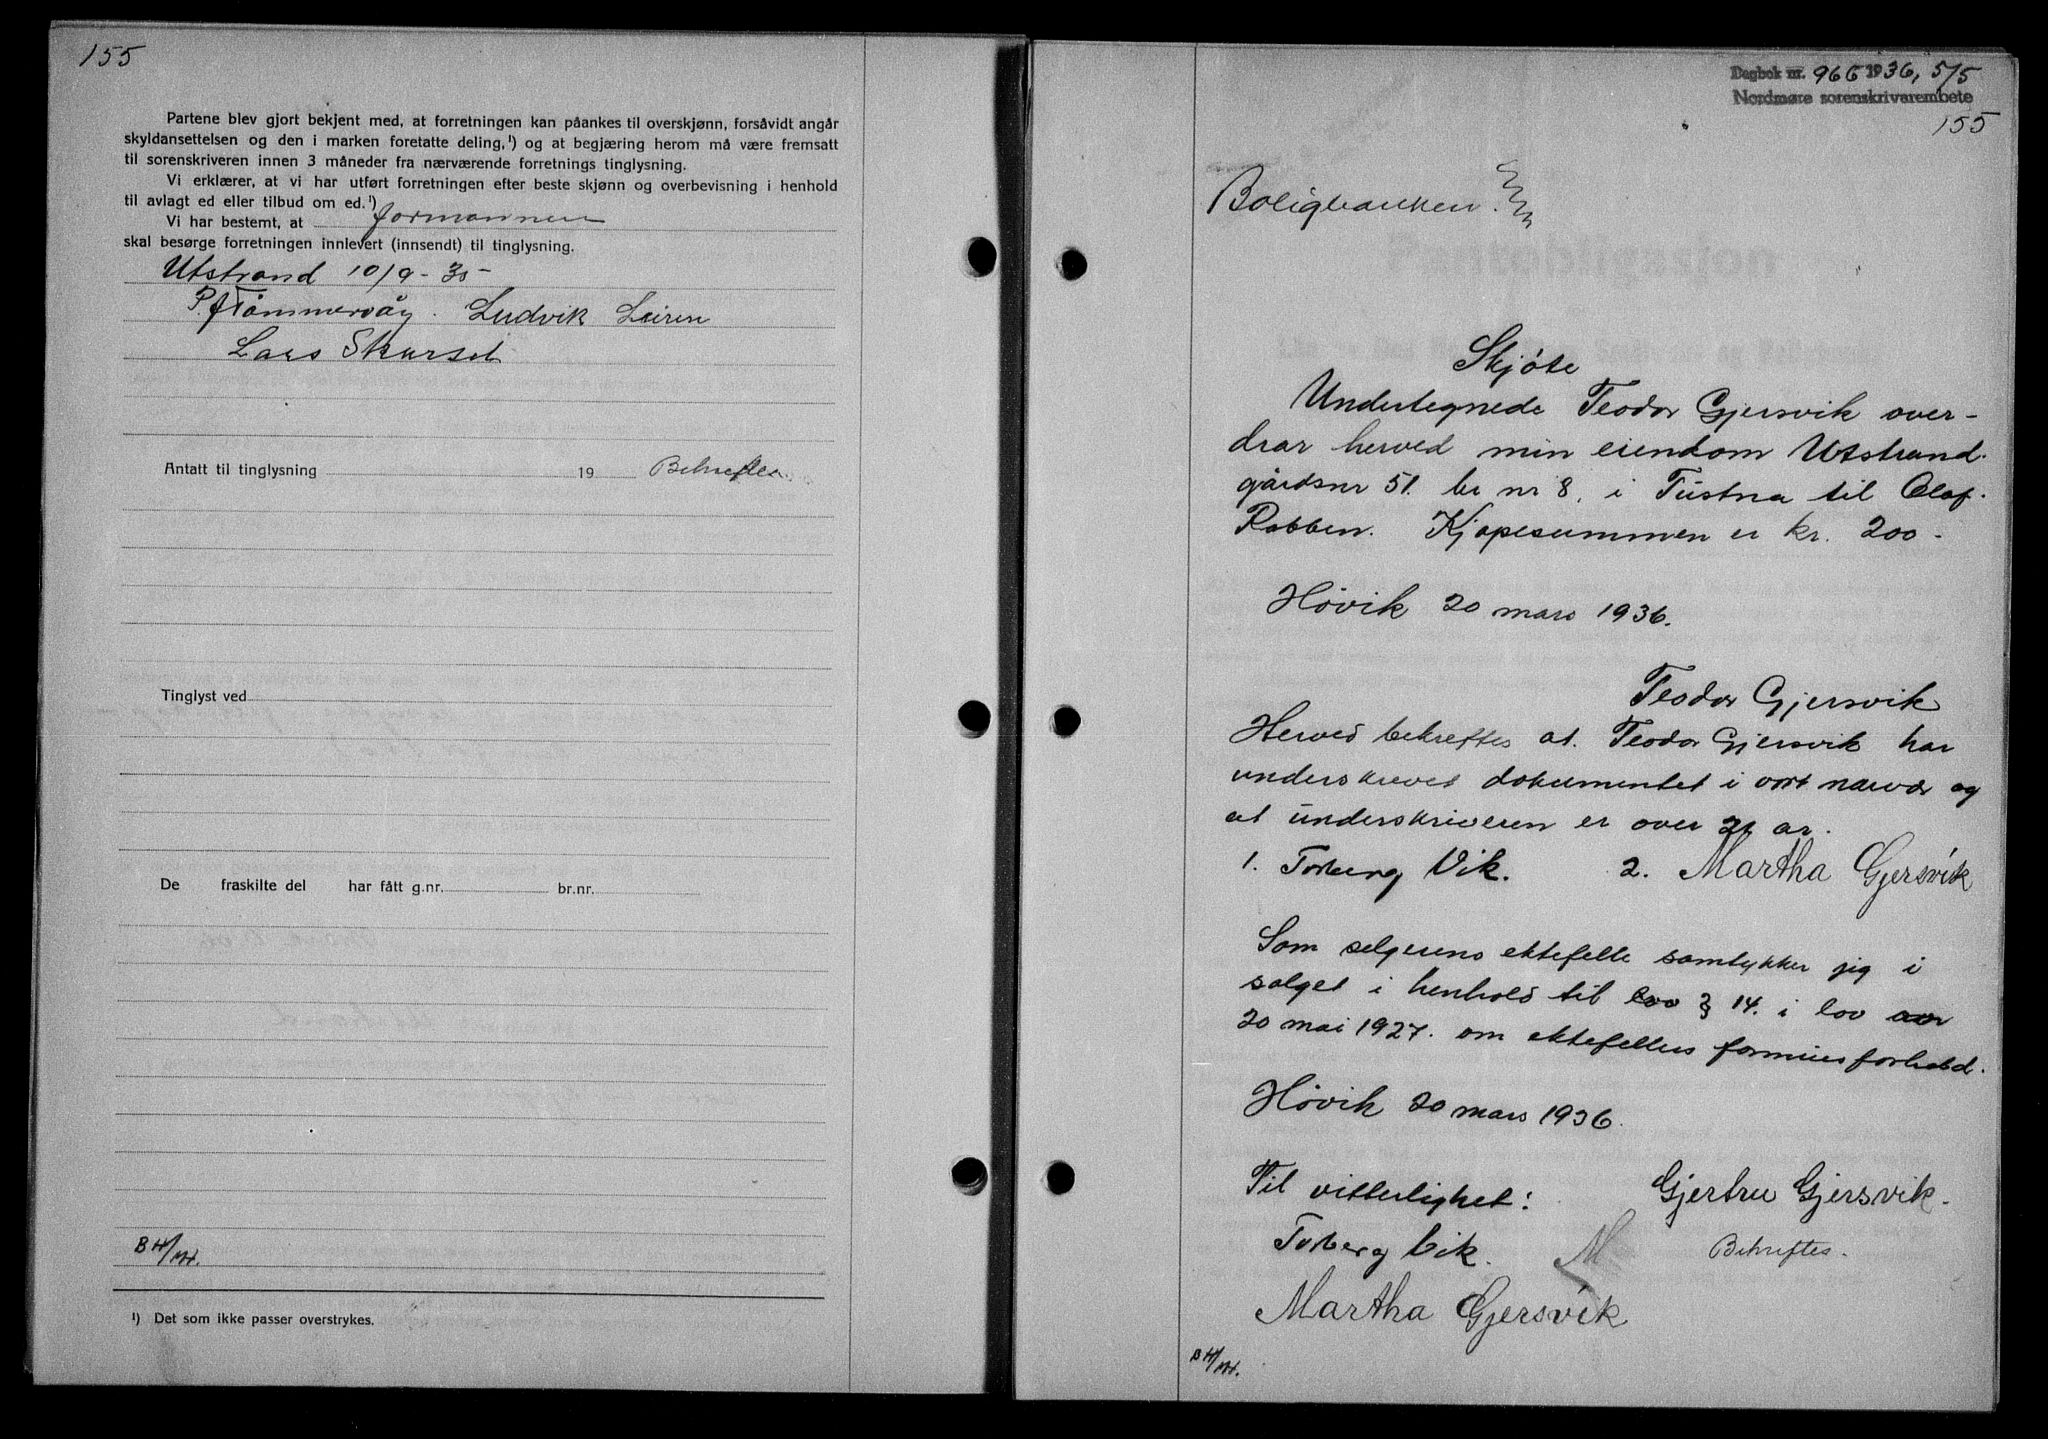 155
Partene blev gjort bekjent med, at forretningen kan påankes til overskjønn, forsåvidt angår
skyldansettelsen og den i marken foretatte deling,¹) og at begjæring herom må være fremsatt
til sorenskriveren innen 3 måneder fra nærværende forretnings tinglysning.
Vi erklærer, at vi har utført forretningen efter beste skjønn og overbevisning i henhold
til avlagt ed eller tilbud om ed.¹)
Vi har bestemt, at formannen
skal besørge forretningen innlevert (innsendt) til tinglysning.
Utstrand 10/9-35
P. J. Tømmervåg. Ludvik Leiren
Lars Skarset
Antatt til tinglysning 19 Bekreftes
Tinglyst ved
De fraskilte del har fått g.nr. br.nr.
BH/MH.
¹) Det som ikke passer overstrykes.
Dagbok nr. 966 1936, 5/5
Nordmøre sorenskriverembete
155
Boligbanken.
Skjöte
Undertegnede Teodor Gjersvik over-
drar herved min eiendom Utstrand.
gårdsnr 51. br nr 8, i Tustna til Olaf.
Robben. Kjøpesummen er kr. 200-
Høvik 20 mars 1936.
Teodor Gjersvik
Herved bekreftes at. Teodor Gjersvik har
underskrevet dokumentet i vort nærvær og
at underskriveren er over 21 ar.
1. Torberg Vik. 2. Martha Gjersvik
Som selgerens ektefelle samtykker jeg i
salget i henhold til lov § 14. i lov av
20 mai 1927. om ektefellers formuesforhold.
Høvik 20 mars 1936.
Til vitterlighet: Gjertru Gjersvik.
Torberg Vik. Bekreftes.
Martha Gjersvik
BH/MH.